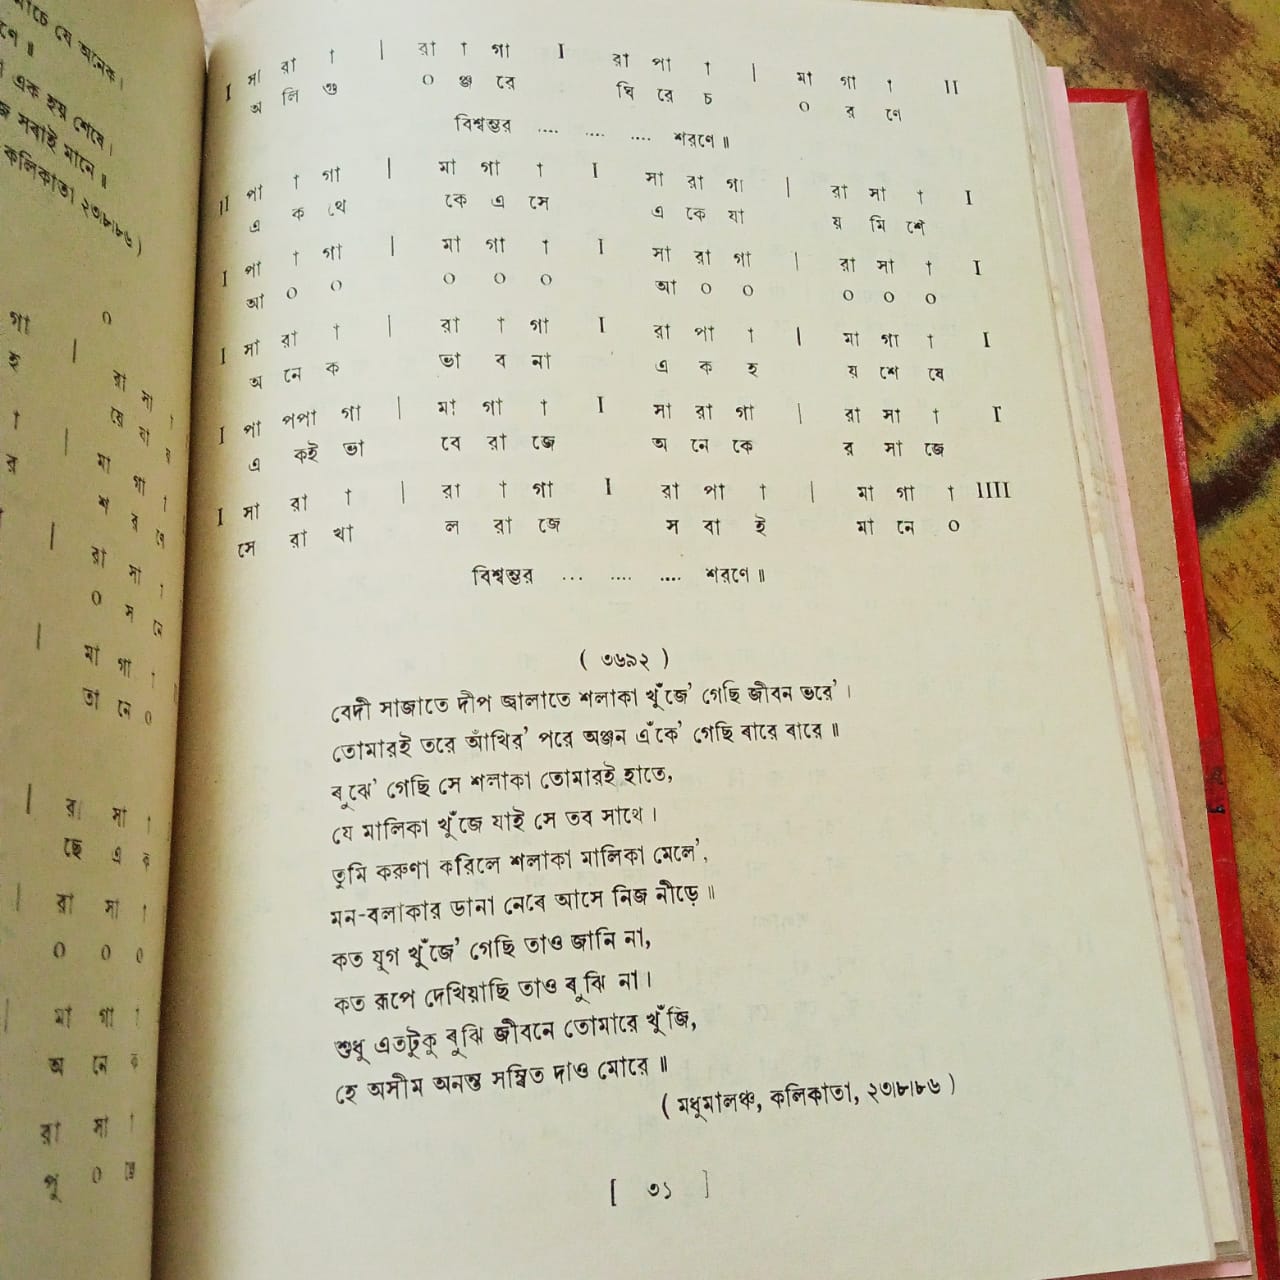 মাচে যে অনেক।
ণে॥
এক হয় শেষে।
সবাই মানে॥
কলিকাতা ২৩৷৮৷৮৬)
I সা রা † | রা † গা I রা পা † | মা গা † II
অ লি গু ০ ঞ্জ রে ঘি রে চ ০ র ণে
বিশ্বম্ভর .... .... .... শরণে॥
II পা † গা | মা গা † I সা রা গা | রা সা † I
এ ক থে কে এ সে এ কে যা য় মি শে
I পা † গা | মা গা † I সা রা গা | রা সা † I
আ ০ ০ ০ ০ ০ আ ০ ০ ০ ০ ০
I সা রা † | রা † গা I রা পা † | মা গা † I
অ নে ক ভা ব না এ ক হ য় শে ষে
I পা পপা গা | মা গা † I সা রা গা | রা সা † I
এ কই ভা বে রা জে অ নে কে র মা জে
I সা রা † | রা † গা I রা পা † | মা গা † IIII
সে রা খা ল রা জে স বা ই মা নে ০
বিশ্বম্ভর ... .... .... শরণে॥
( ৩৬৯২ )
বেদী সাজাতে দীপ জ্বালাতে শলাকা খুঁজে' গেছি জীবন ভরে'।
তোমারই তরে আঁখির' পরে অঞ্জন এঁকে' গেছি বারে বারে॥
বুঝে' গেছি সে শলাকা তোমারই হাতে,
যে মালিকা খুঁজে যাই সে তব সাথে।
তুমি করুণা করিলে শলাকা মালিকা মেলে',
মন-বলাকার ডানা নেবে আসে নিজ নীড়ে॥
কত যুগ খুঁজে' গেছি তাও জানি না,
কত রূপে দেখিয়াছি তাও বুঝি না।
শুধু এতটুকু বুঝি জীবনে তোমারে খুঁজি,
হে অসীম অনন্ত সম্বিত দাও মোরে॥
( মধুমালঞ্চ, কলিকাতা, ২৩৷৮৷৮৬ )
[ ৩১ ]